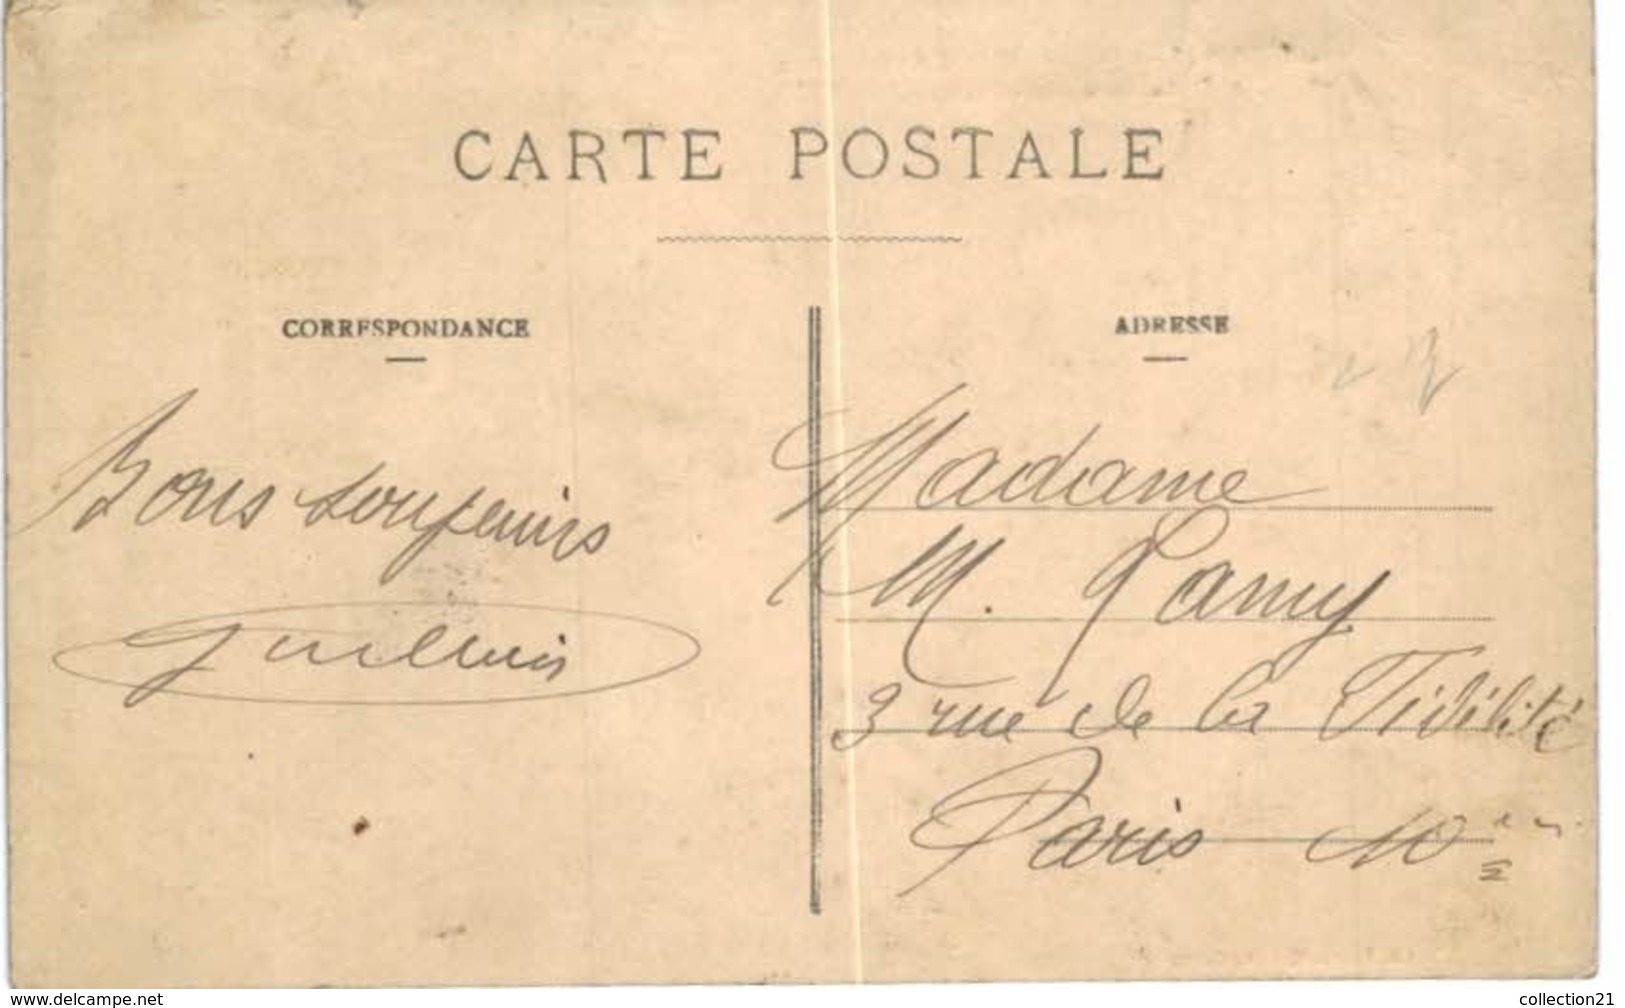 CARTE POSTALE
CORRESPONDANCE
ADRESSE
Bons souvenirs
Madame
M. Lamy
3 rue de la Fidélité
Paris 10
www.delcampe.net
collection21